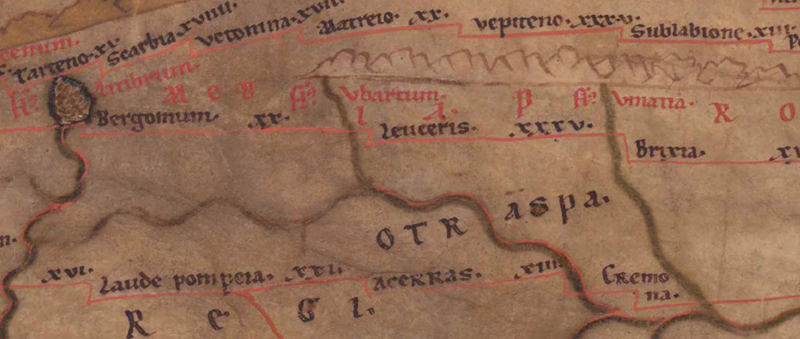 Tarteno·xv· Scarbia·xviiii· vetonina·xviii· Matreio·xx· vepiteno·xxxv· Sublabione·xiii·
Me
fl Vbartum·
fl Vmatia·
R O
Bergomum· xx·
Leuceris· xxxv·
Brixia·
OTR aspa·
xvi· Laude pompeia· xxii· Acerras· xiii
Cremo
na·
R e G I·